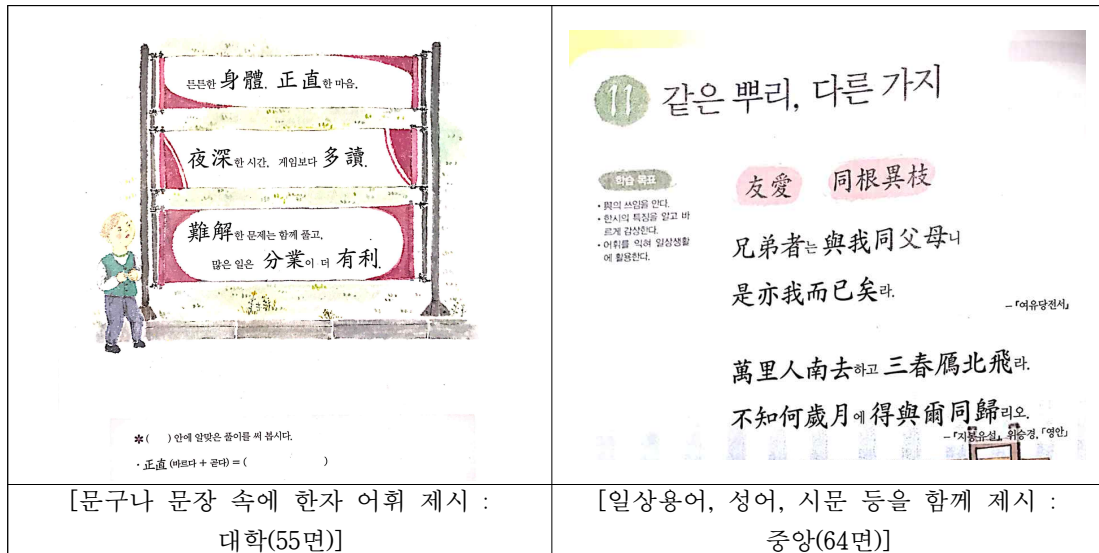 튼튼한 身體, 正直한 마음.
夜深한 시간, 게임보다 多讀.
難解한 문제는 함께 풀고,
많은 일은 分業이 더 有利.
✻ (      ) 안에 알맞은 풀이를 써 봅시다.
· 正直 (바르다 + 곧다) = (                )
[문구나 문장 속에 한자 어휘 제시 :
대학(55면)]
11 같은 뿌리, 다른 가지
학습 목표
• 與의 쓰임을 안다.
• 한시의 특징을 알고 바
르게 감상한다.
• 어휘를 익혀 일상생활
에 활용한다.
友愛 同根異枝
兄弟者는 與我同父母니
是亦我而已矣라.
- 「여유당전서」
萬里人南去하고 三春鴈北飛라.
不知何歲月에 得與爾同歸리오.
- 「지봉유설」, 위승경, 「영안」
[일상용어, 성어, 시문 등을 함께 제시 :
중앙(64면)]